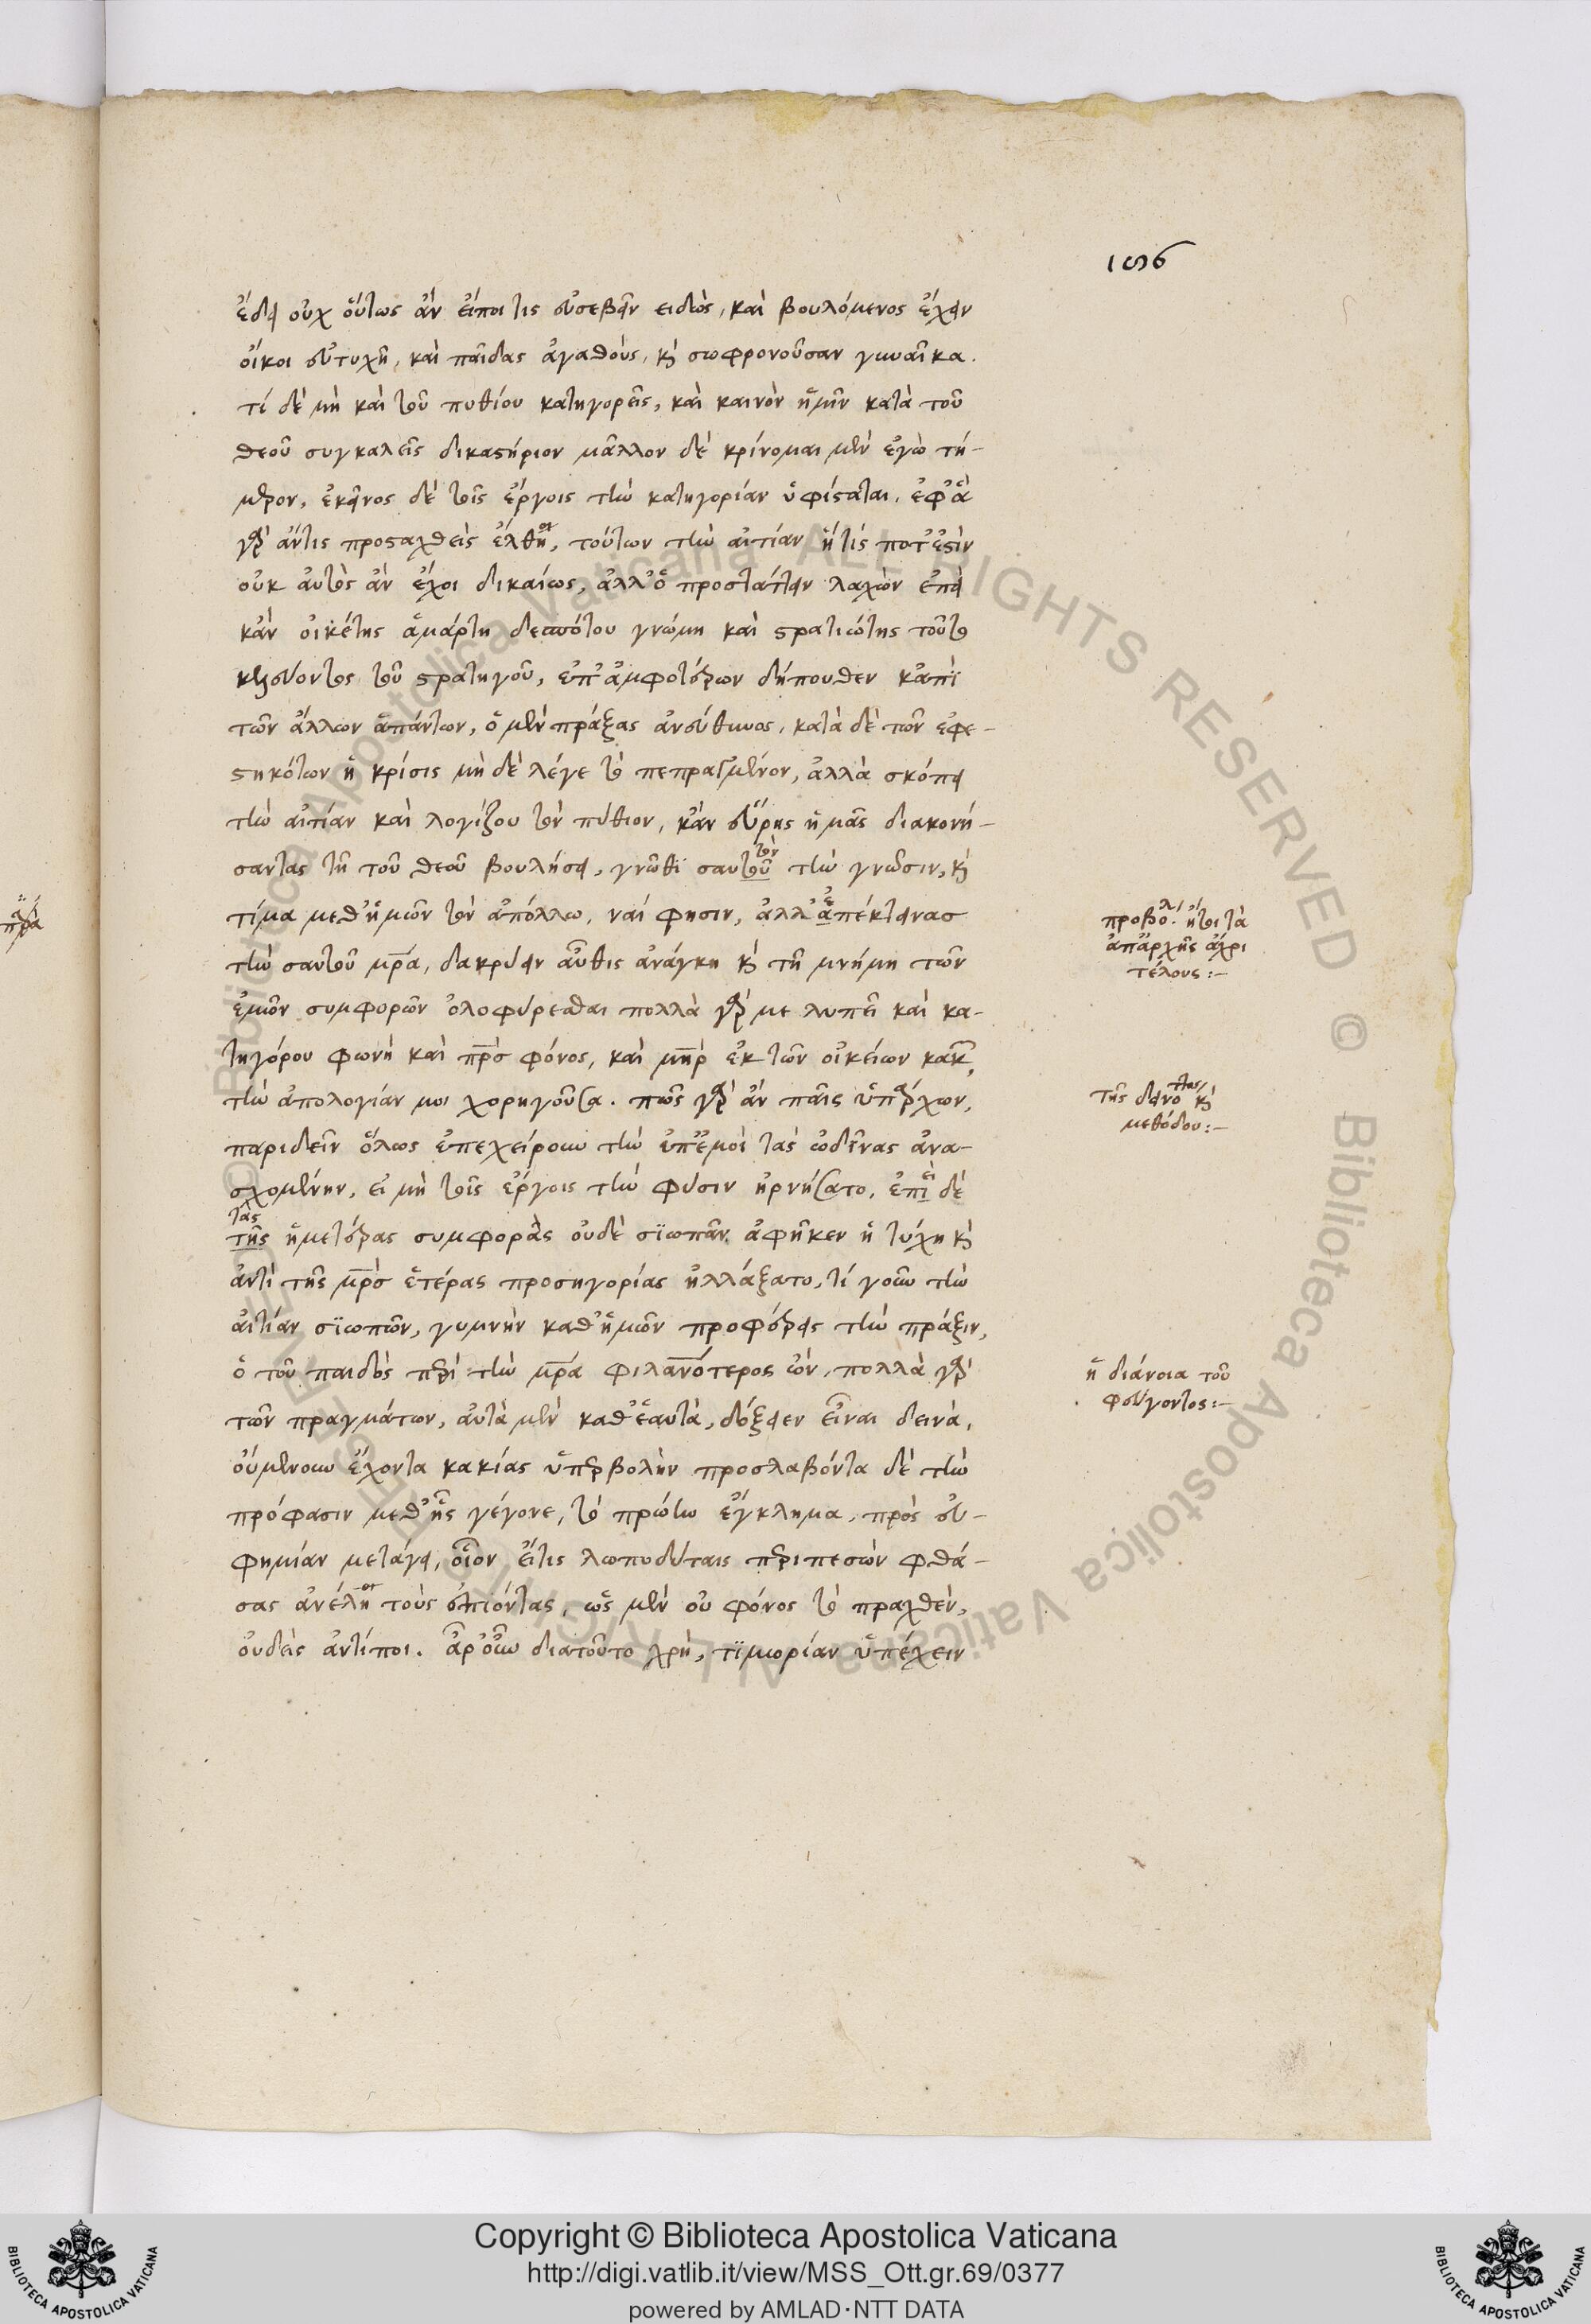 186
ἔδει οὐχ οὕτως ἄν εἴποι τις εὐσεβεῖν ειδὼς, καὶ βουλόμενος ἔχειν
οἴκοι εὐτυχῆ, καὶ παῖδας ἀγαθοὺς, κὶ σωφρονοῦσαν γυναῖκα.
τί δὲ μὴ καὶ τοῦ πυθίου κατηγορεῖς, καὶ καινὸν ἡμῖν κατὰ τοῦ
θεοῦ συγκαλεῖς δικαστήριον μᾶλλον δὲ κρίνομαι μὲν ἐγὼ τή-
μερον, ἐκεῖνος δὲ τοῖς ἔργοις τὴν κατηγορίαν ὑφίσταται. ἐφ' ἃ
γὰρ ἄν τις προσταχθεὶς ἔλθῃ, τούτων τὴν αἰτίαν ἥτίς ποτ' ἐστὶν
οὐκ αὐτὸς ἂν ἔχοι δικαίως, ἀλλ' ὁ προστάττειν λαχὼν ἐπεὶ
κἂν οἰκέτης ἁμάρτη δεσπότου γνώμη καὶ στρατιώτης τοῦτο
κελεύοντος τοῦ στρατηγοῦ, ἐπ' ἀμφοτέρων δήπουθεν κἀπὶ
τῶν ἄλλων ἁπάντων, ὁ μὲν πράξας ἀνεύθυνος, κατὰ δὲ τῶν ἐφε-
στηκότων ἡ κρίσις μὴ δὲ λέγε τὸ πεπραγμένον, ἀλλὰ σκόπει
τὴν αἰτίαν καὶ λογίζου τὸν πύθιον, κἂν εὕρης ἡμᾶς διακονή-
σαντας τῆ τοῦ θεοῦ βουλήσει, γνῶθι σαυτοῦ τὴν γνῶσιν, κὶ
τὸν
τίμα μεθ' ἡμῶν τὸν ἀπόλλω, ναί φησιν, ἀλλ' ἀπέκτεινας
τὴν σαυτοῦ μρα, δακρύειν αὖθις ἀνάγκη κὶ τῆ μνήμη τῶν
ἐμῶν συμφορῶν ὀλοφύρεσθαι πολλὰ γάρ με λυπεῖ καὶ κα-
τηγόρου φωνὴ καὶ πρς φόνος, καὶ μηρ ἐκ τῶν οἰκείων κακ,
τὴν ἀπολογίαν μοι χορηγοῦσα. πῶς γὰρ ἂν παῖς ὑπάρχων,
παριδεῖν ὅλως ἐπεχείρουν τὴν ἐπ' ἐμοὶ τὰς ὠδῖνας ἀνα-
σχομένην, εἰ μὴ τοῖς ἔργοις τὴν φύσιν ἠρνήσατο, ἐπὶ δὲ
εὶ
τὰς
τῆς ἡμετέρας συμφορὰς οὐδὲ σϊωπᾶν ἀφῆκεν ἡ τύχη κὶ
ἀντὶ τῆς μρς ἑτέρας προσηγορίας ἠλλάξατο, τί γοῦν τὴν
αἰτίαν σϊωπῶν, γυμνὴν καθ' ἡμῶν προφέρεις τὴν πράξιν,
ὁ τοῦ παιδὸς περὶ τὴν μρα φιλανότερος ὤν, πολλὰ γὰρ
τῶν πραγμάτων, αὐτὰ μὲν καθ' ἑαυτὰ, δόξειεν εἶναι δεινὰ,
οὐμενοῦν ἔχοντα κακίας ὑπερβολὴν προσλαβόντα δὲ τὴν
πρόφασιν μεθ' ἧς γέγονε, τὸ πρώτω ἔγκλημα, πρὸς εὐ-
φημίαν μετάγει, οἷον εἴτις λωποδύταις περιπεσὼν φθά-
σας ἀνέλῃ τοὺς ἐπιόντας, ὡς μὲν οὐ φόνος τὸ πραχθὲν,
οὐδεὶς ἀντίποι. ἆρ' οὖν διατοῦτο χρὴ, τϊμωρίαν ὑπέχειν
προβολ. ἤτοι τὰ
ἀπ' ἀρχῆς ἄχρι
τέλους :-
τῆς δεινότητος κὶ
μεθόδου :-
ἡ διάνοια τοῦ
φεύγοντος :-
© Biblioteca Apostolica Vaticana ALL RIGHTS RESERVED
Copyright © Biblioteca Apostolica Vaticana
http://digi.vatlib.it/view/MSS_Ott.gr.69/0377
powered by AMLAD·NTT DATA
BIBLIOTECA APOSTOLICA VATICANA
BIBLIOTECA APOSTOLICA VATICANA